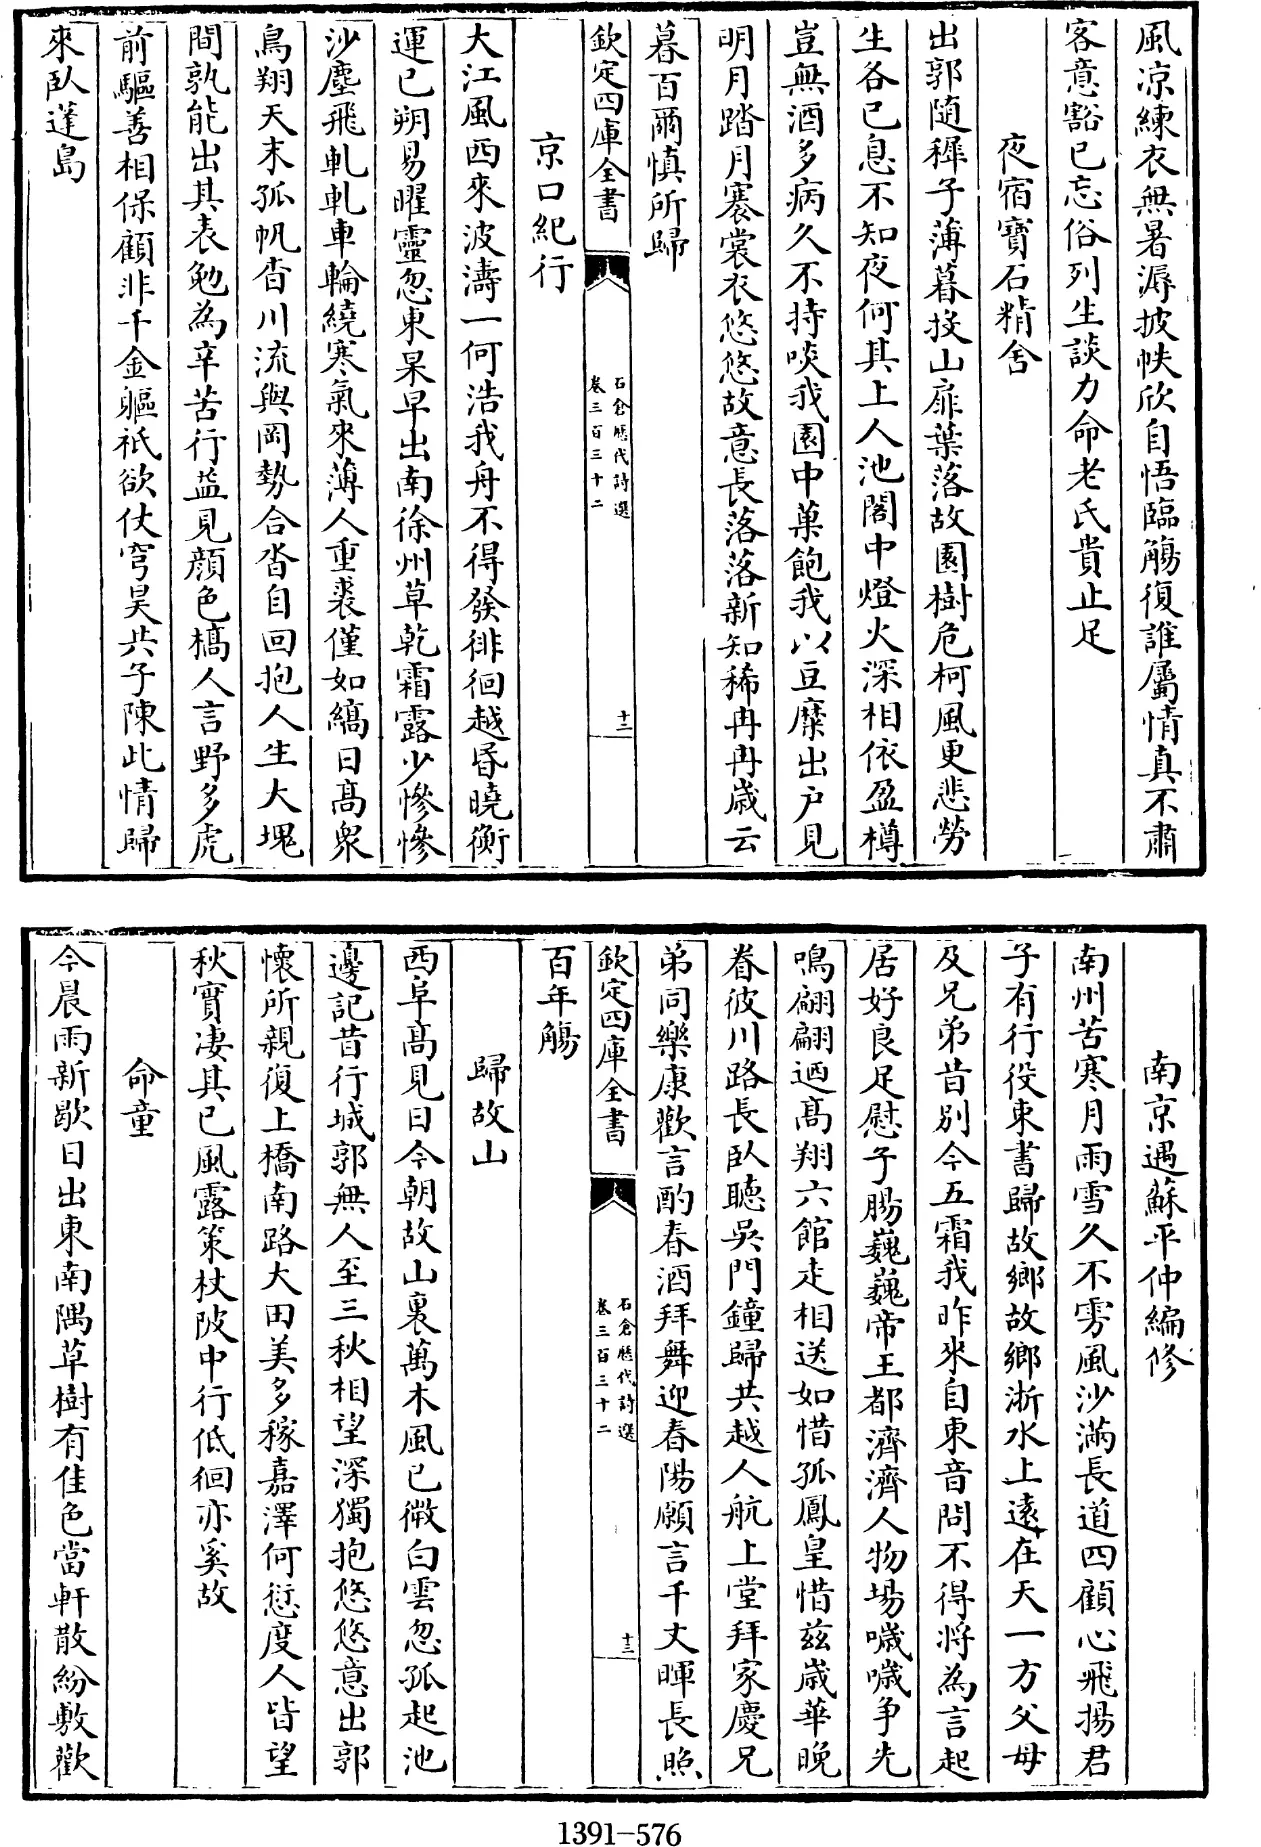 風凉練衣無暑溽披帙欣自悟臨觴復誰屬情真不肅
客意豁已忘俗列生談力命老氏貴止足
夜宿寶石精舍
出郭隨穉子薄暮投山扉葉落故園樹危柯風更悲勞
生各已息不知夜何其上人池閣中燈火深相依盈樽
豈無酒多病久不持啖我園中菓飽我以豆糜出户見
明月踏月褰裳衣悠悠故意長落落新知稀冉冉歳云
暮百爾慎所歸
欽定四庫全書
石倉歴代詩選
卷三百三十二
十二
京口紀行
大江風西來波濤一何浩我舟不得發徘徊越昏曉衡
運已朔易曜靈忽東杲早出南徐州草乾霜露少慘慘
沙塵飛軋軋車輪繞寒氣來薄人重裘僅如縞日髙衆
鳥翔天末孤帆杳川流與岡勢合沓自回抱人生大塊
間孰能出其表勉為辛苦行益見顔色槁人言野多虎
前驅善相保顧非千金軀祇欲仗穹昊共子陳此情歸
來臥蓬島
南京遇蘇平仲編修
南州苦寒月雨雪久不雱風沙滿長道四顧心飛揚君
子有行役束書歸故鄉故鄉浙水上逺在天一方父母
及兄弟昔别今五霜我昨來自東音問不得將為言起
居好良足慰子腸巍巍帝王都濟濟人物場噦噦争先
鳴翩翩迺髙翔六館走相送如惜孤鳳皇惜兹歳華晚
眷彼川路長臥聴吳門鐘歸共越人航上堂拜家慶兄
弟同樂康歡言酌春酒拜舞迎春陽願言千丈暉長照
欽定四庫全書
石倉歴代詩選
卷三百三十二
十三
百年觴
歸故山
西阜髙見日今朝故山裏萬木風已微白雲忽孤起池
邊記昔行城郭無人至三秋相望深獨抱悠悠意出郭
懷所親復上橋南路大田美多稼嘉澤何愆度人皆望
秋實凄其已風露策杖陂中行低徊亦奚故
命童
今晨雨新歇日出東南隅草樹有佳色當軒散紛敷歡
1391-576